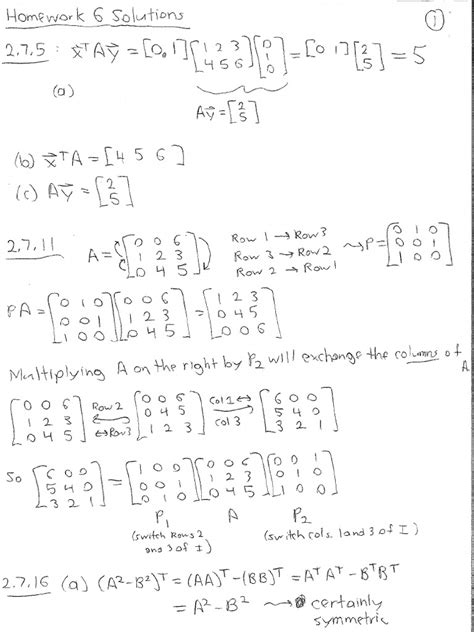 Homework 6 Solutions
①
2.7.5 : x⃗ᵀAy⃗ = [0, 1][1 2 3; 4 5 6][0; 1; 0] = [0 1][2; 5] = 5
(a)
Ay⃗ = [2; 5]
(b) x⃗ᵀA = [4 5 6]
(c) Ay⃗ = [2; 5]
2.7.11 A = [0 0 6; 1 2 3; 0 4 5] Row 1 → Row 3 Row 3 → Row 2 Row 2 → Row 1 ⇝ P = [0 1 0; 0 0 1; 1 0 0]
PA = [0 1 0; 0 0 1; 1 0 0][0 0 6; 1 2 3; 0 4 5] = [1 2 3; 0 4 5; 0 0 6]
Multiplying A on the right by P₂ will exchange the columns of A
[0 0 6; 1 2 3; 0 4 5] Row 2 ↔ Row 3 [0 0 6; 0 4 5; 1 2 3] Col 1 ↔ col 3 [6 0 0; 5 4 0; 3 2 1]
So [6 0 0; 5 4 0; 3 2 1] = [1 0 0; 0 0 1; 0 1 0][0 0 6; 1 2 3; 0 4 5][0 0 1; 0 1 0; 1 0 0]
P₁ A P₂
(switch Rows 2 and 3 of I) (switch cols. 1 and 3 of I)
2.7.16 (a) (A²-B²)ᵀ = (AA)ᵀ-(BB)ᵀ = AᵀAᵀ - BᵀBᵀ
= A² - B² ⇝ certainly
symmetric